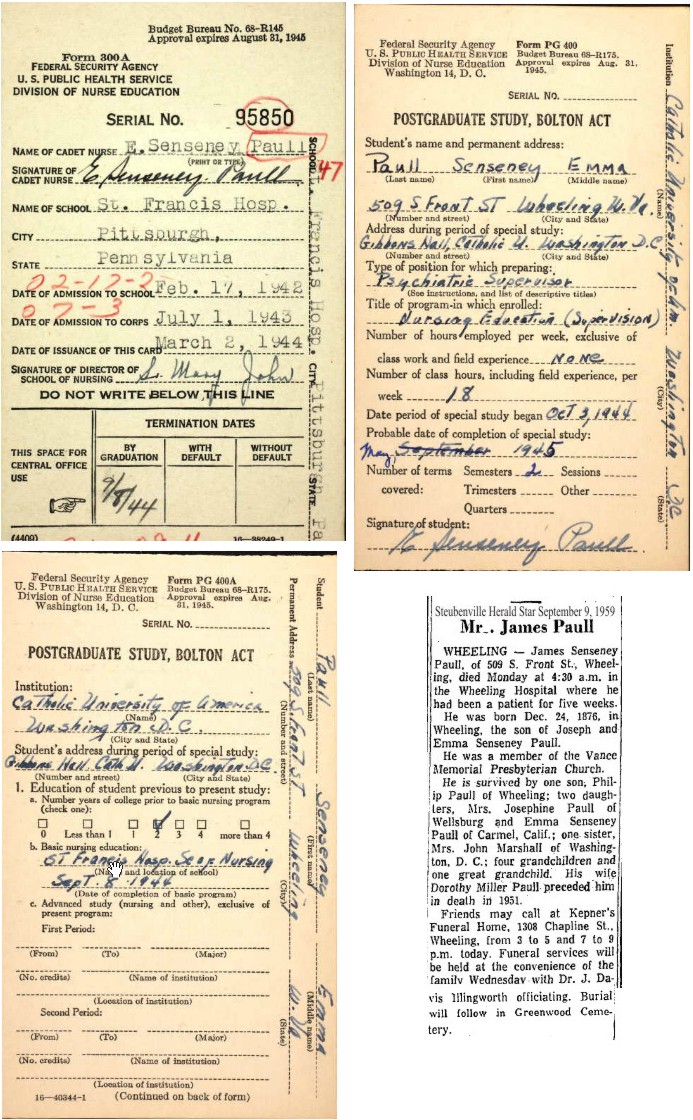 Budget Bureau No. 68-R145
Approval expires August 31, 1945
Form 300A
FEDERAL SECURITY AGENCY
U. S. PUBLIC HEALTH SERVICE
DIVISION OF NURSE EDUCATION
SERIAL NO. 95850
NAME OF CADET NURSE E. Senseney Paull
(PRINT OR TYPE)
SIGNATURE OF
CADET NURSE E. Senseney Paull
NAME OF SCHOOL St. Francis Hosp.
CITY Pittsburgh,
STATE Pennsylvania
02-17-2
DATE OF ADMISSION TO SCHOOL Feb. 17, 1942
07-3
DATE OF ADMISSION TO CORPS July 1, 1943
DATE OF ISSUANCE OF THIS CARD March 2, 1944
SIGNATURE OF DIRECTOR OF
SCHOOL OF NURSING S. Mary John
DO NOT WRITE BELOW THIS LINE
THIS SPACE FOR
CENTRAL OFFICE
USE
TERMINATION DATES
BY GRADUATION
WITH DEFAULT
WITHOUT DEFAULT
9/8/44
(4409)
16-38249-1
47
SCHOOL Francis Hosp. CITY Pittsburgh STATE Pa
Federal Security Agency
U. S. PUBLIC HEALTH SERVICE
Division of Nurse Education
Washington 14, D. C.
Form PG 400
Budget Bureau 68-R175.
Approval expires Aug. 31,
1945.
SERIAL NO.
POSTGRADUATE STUDY, BOLTON ACT
Student's name and permanent address:
Paull Senseney Emma
(Last name) (First name) (Middle name)
509 S Front ST Wheeling W. Va.
(Number and street) (City and State)
Address during period of special study:
Gibbons Hall, Catholic U. Washington D.C
(Number and street) (City and State)
Type of position for which preparing:
Psychiatric Supervisor
(See instructions, and list of descriptive titles)
Title of program in which enrolled:
Nursing Education (SuperVISION)
Number of hours employed per week, exclusive of
class work and field experience none
Number of class hours, including field experience, per
week 18
Date period of special study began Oct 3, 1944
Probable date of completion of special study:
May September 1945
Number of terms Semesters 2 Sessions
covered: Trimesters Other
Quarters
Signature of student:
E Senseney Paull
Institution Catholic University of Am. Washington DC
(Name) (City) (State)
Federal Security Agency
U. S. PUBLIC HEALTH SERVICE
Division of Nurse Education
Washington 14, D. C.
Form PG 400A
Budget Bureau 68-R175.
Approval expires Aug.
31, 1945.
SERIAL NO.
POSTGRADUATE STUDY, BOLTON ACT
Institution:
Catholic University of America
(Name)
Washington D.C.
(City and State)
Student's address during period of special study:
Gibbons Hall, Cath U. Washington DC
(Number and street) (City and State)
1. Education of student previous to present study:
a. Number years of college prior to basic nursing program
(check one):
0 Less than 1 1 2 3 4 more than 4
b. Basic nursing education:
ST Francis Hosp. Sc of Nursing
(Name and location of school)
Sept. 8 1944
(Date of completion of basic program)
c. Advanced study (nursing and other), exclusive of
present program:
First Period:
(From) (To) (Major)
(No. credits) (Name of institution)
(Location of institution)
Second Period:
(From) (To) (Major)
(No. credits) (Name of institution)
(Location of institution)
16—40344-1 (Continued on back of form)
Student Paull Senseney Emma
(Last name) (First name) (Middle name)
Permanent Address 509 S. Front ST Wheeling W. Va
(Number and street) (City) (State)
Steubenville Herald Star September 9, 1959
Mr. James Paull
WHEELING — James Senseney
Paull, of 509 S. Front St., Wheel-
ing, died Monday at 4:30 a.m. in
the Wheeling Hospital where he
had been a patient for five weeks.
He was born Dec. 24, 1876, in
Wheeling, the son of Joseph and
Emma Senseney Paull.
He was a member of the Vance
Memorial Presbyterian Church.
He is survived by one son, Phil-
ip Paull of Wheeling; two daugh-
ters, Mrs. Josephine Paull of
Wellsburg and Emma Senseney
Paull of Carmel, Calif.; one sister,
Mrs. John Marshall of Washing-
ton, D. C.; four grandchildren and
one great grandchild. His wife
Dorothy Miller Paull preceded him
in death in 1951.
Friends may call at Kepner's
Funeral Home, 1308 Chapline St.,
Wheeling, from 3 to 5 and 7 to 9
p.m. today. Funeral services will
be held at the convenience of the
family Wednesday with Dr. J. Da-
vis Illingworth officiating. Burial
will follow in Greenwood Ceme-
tery.